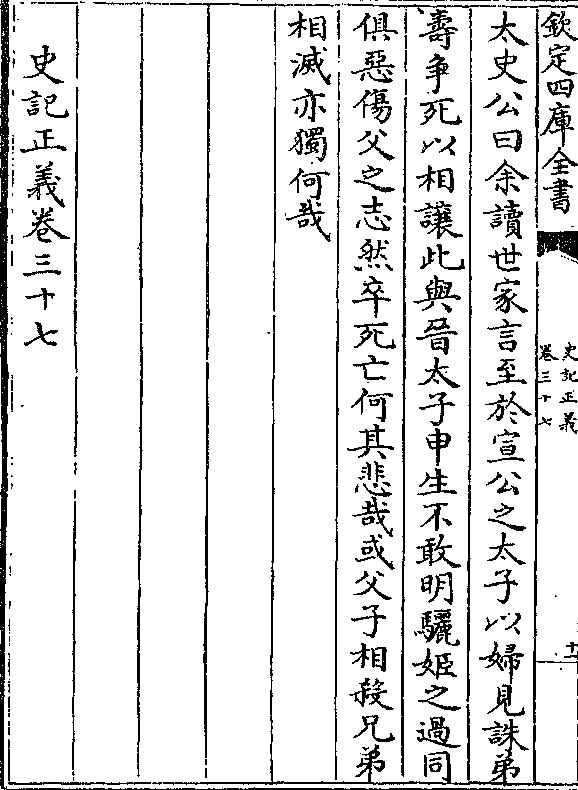 欽定四庫全書
史記正義
卷三十七
十一
太史公曰余讀世家言至於宣公之太子以婦見誅弟
壽爭死以相讓此與晉太子申生不敢明驪姬之過同
俱惡傷父之志然卒死亡何其悲哉或父子相殺兄弟
相滅亦獨何哉
史記正義卷三十七